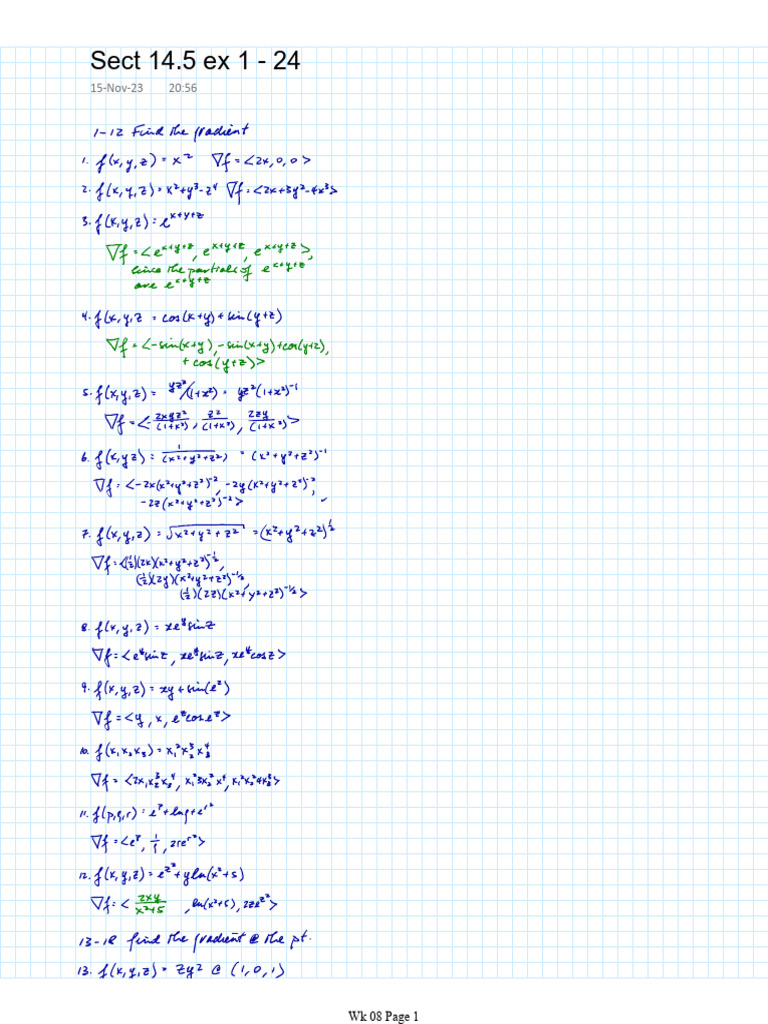 Sect 14.5 ex 1 - 24
15-Nov-23 20:56
1-12 Find the gradient
1. f(x,y,z) = x² ∇f = <2x,0,0>
2. f(x,y,z) = x²+y³-z⁴ ∇f = <2x+3y²-4x³>
3. f(x,y,z) = e^(x+y+z)
∇f = <e^(x+y+z), e^(x+y+z), e^(x+y+z)>,
since the partials of e^(x+y+z)
are e^(x+y+z)
4. f(x,y,z = cos(x+y)+sin(y+z)
∇f = <-sin(x+y), -sin(x+y)+cos(y+z),
+cos(y+z)>
5. f(x,y,z) = yz²/(1+x²) = yz²(1+x²)⁻¹
∇f = <-2xyz²/(1+x²), z²/(1+x²), 2zy/(1+x²)>
6. f(x,yz) = 1/(x²+y²+z²) = (x²+y²+z²)⁻¹
∇f = <-2x(x²+y²+z²)⁻², -2y(x²+y²+z²)⁻²,
-2z(x²+y²+z²)⁻²>
7. f(x,y,z) = √(x²+y²+z²) = (x²+y²+z²)^½
∇f = <(½)(2x)(x²+y²+z²)^-½,
(½)(2y)(x²+y²+z²)^-1/2,
(½)(2z)(x²+y²+z²)^-1/2>
8. f(x,y,z) = xe^y sinz
∇f = <e^y sinz, xe^y sinz, xe^y cosz>
9. f(x,y,z) = xy+sin(e^z)
∇f = <y, x, e^z cos e^z>
10. f(x₁x₂x₃) = x₁²x₂³x₃⁴
∇f = <2x₁x₂³x₃⁴, x₁²3x₂²x⁴, x₁²x₂³4x₃³>
11. f(p,q,r) = e^p+lnq+e^r²
∇f = <e^p, 1/q, 2re^r²>
12. f(x,y,z) = e^z²+yln(x²+5)
∇f = <2xy/(x²+5), ln(x²+5), 2ze^z²>
13-18 find the gradient @ the pt.
13. f(x,y,z) = zy² @ (1,0,1)
Wk 08 Page 1